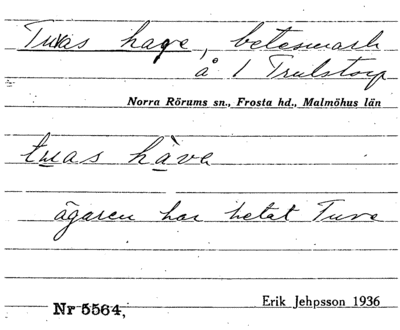 Tuvas hage, betesmark
å 1 Trulstorp
Norra Rörums sn., Frosta hd., Malmöhus län
tuas hàva
ägaren har hetat Tuve
Nr 5564,
Erik Jehpsson 1936